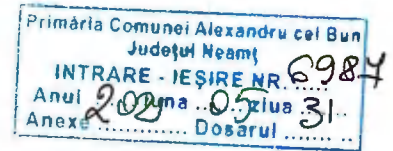 Primăria Comunei Alexandru cel Bun
Județul Neamț
INTRARE - IEȘIRE NR. 6987
Anul 202 na 05 ziua 31
Anexe ........ Dosarul .......